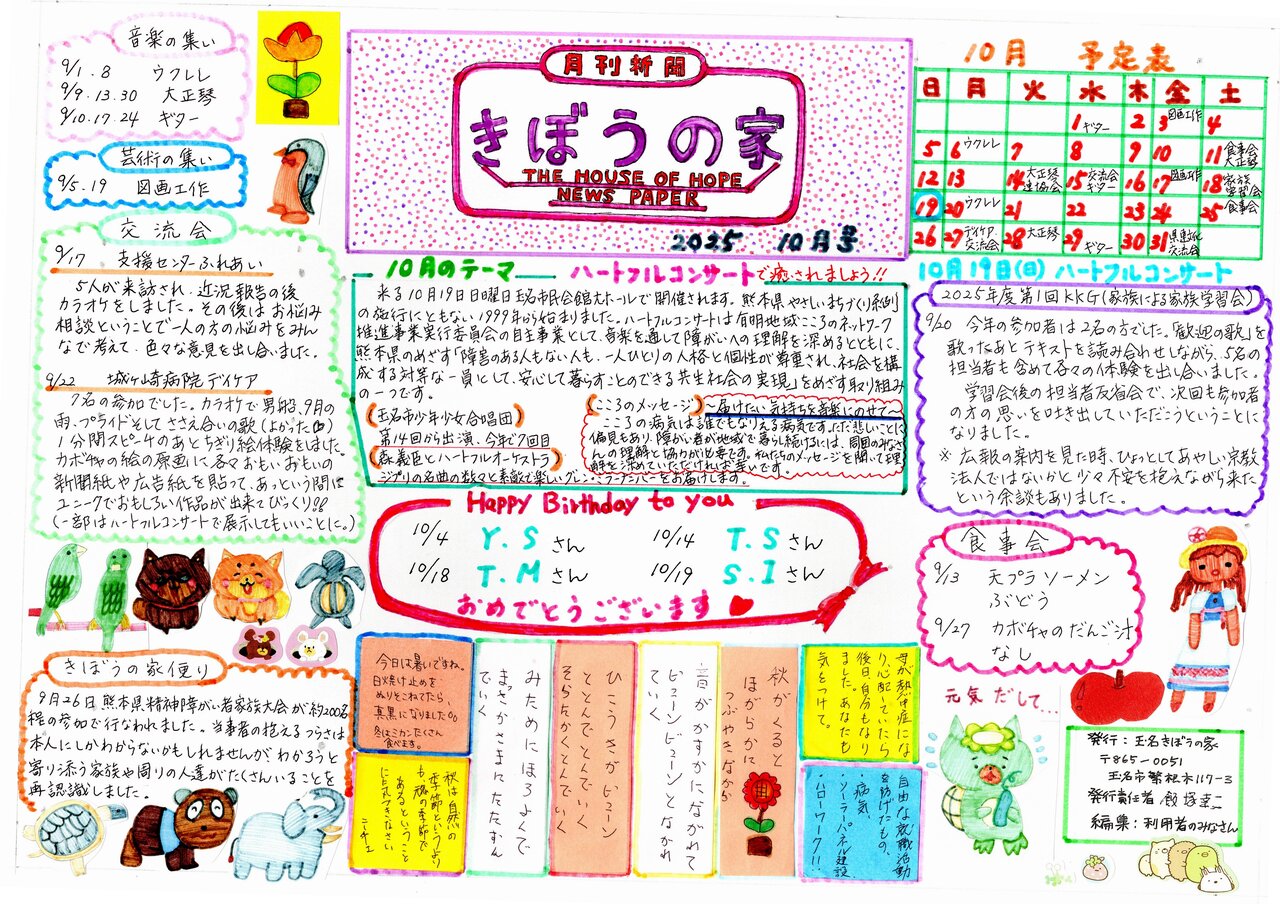 音楽の集い
9/1.8 ウクレレ
9/9.13.30 大正琴
9/10.17.24 ギター
芸術の集い
9/5.19 図画工作
交流会
9/17 支援センターふれあい
5人が来訪され、近況報告の後
カラオケをしました。その後はお悩み
相談ということで一人の方の悩みをみん
なで考えて、色々な意見を出し合いました。
9/22 城ヶ崎病院デイケア
7名の参加でした。カラオケで男船、9月の
雨、プライドそしてささえ合いの歌(よかった)
1分間スピーチのあとちぎり絵体験をしました。
カボチャの絵の原画に各々おもいおもいの
新聞紙や広告紙を貼って、あっという間に
ユニークでおもしろい作品が出来てびっくり!!
(一部はハートフルコンサートで展示してもいいことに。)
きぼうの家便り
9月26日熊本県精神障がい者家族大会が約200名
程の参加で行なわれました。当事者の抱えるつらさは
本人にしかわからないかもしれませんが、わかろうと
寄り添う家族や周りの人達がたくさんいることを
再認識しました。
月刊新聞
きぼうの家
THE HOUSE OF HOPE
NEWS PAPER
2025 10月号
10月のテーマ ハートフルコンサートで癒されましょう!!
来る10月19日日曜日玉名市民会館大ホールで開催されます。熊本県やさしいまちづくり条例
の施行にともない1999年から始まりました。ハートフルコンサートは有明地域こころのネットワーク
推進事業実行委員会の自主事業として、音楽を通して障がいへの理解を深めるとともに、
熊本県のめざす「障害のある人もない人も、一人ひとりの人格と個性が尊重され、社会を構
成する対等な一員として、安心して暮らすことのできる共生社会の実現」をめざす取り組み
の一つです。
(玉名市少年少女合唱団)
第14回から出演、今年で7回目
(森義臣とハートフルオーケストラ)
ジブリの名曲の数々と素敵で楽しいグレン・ミラーナンバーをお届けします。
(こころのメッセージ)ー届けたい気持ちを音楽にのせてー
こころの病気は誰でもなりえる病気です。ただ悲しいことに
偏見もあり、障がい者が地域で暮らし続けるには、周囲のみなさ
んの理解と協力が必要です。私たちのメッセージを聞いて理
解を深めていただければ幸いです。
Happy Birthday to you
10/4 Y.Sさん 10/14 T.Sさん
10/18 T.Mさん 10/19 S.Iさん
おめでとうございます
今日は暑いですね。
日焼け止めを
ぬりそこねてたら、
真黒になりました。
冬はミカンたくさん
食べます。
秋は自然の
季節というより
も、魂の季節で
あるということ
に気づきなさい
ニーチェ
みためにほろよくて
まっさかさまにたたずん
でいく
ひこうきがビューン
ととんでとんでいく
そらたかくとんでいく
音がかすかにながれて
ビューンビューンとながれ
ていく
秋がくると
ほがらかに
つぶやきながら
母が熱中症にな
り、心配していたら
後日、自分もなり
ました。あなたも
気をつけて。
自由な就職活動
を妨げたもの、
・病気
・ソーラーパネル建設
・ハローワーク!!
10月 予定表
日 月 火 水 木 金 土
1ギター 2 3図画工作 4
5 6ウクレレ 7 8 9 10 11食事会 大正琴
12 13 14大正琴 15交流会 ギター 16 17図画工作 18家族学習会
19 20ウクレレ 21 22 23 24 25食事会
26 27デイケア交流会 28大正琴 29ギター 30 31
10月19日(日) ハートフルコンサート
2025年度第1回KKG(家族による家族学習会)
9/20 今年の参加者は2名の方でした。「歓迎の歌」を
歌ったあとテキストを読み合わせしながら、5名の
担当者も含めて各々の体験を出し合いました。
学習会後の担当者反省会で、次回も参加者
の方の思いを吐き出していただこうということに
なりました。
※広報の案内を見た時、ひょっとしてあやしい宗教
法人ではないかと少々不安を抱えながら来た
という余談もありました。
食事会
9/13 天プラソーメン
ぶどう
9/27 カボチャのだんご汁
なし
元気だして…
発行:玉名きぼうの家
〒865-0051
玉名市繁根木117-3
発行責任者 飯塚幸二
編集:利用者のみなさん